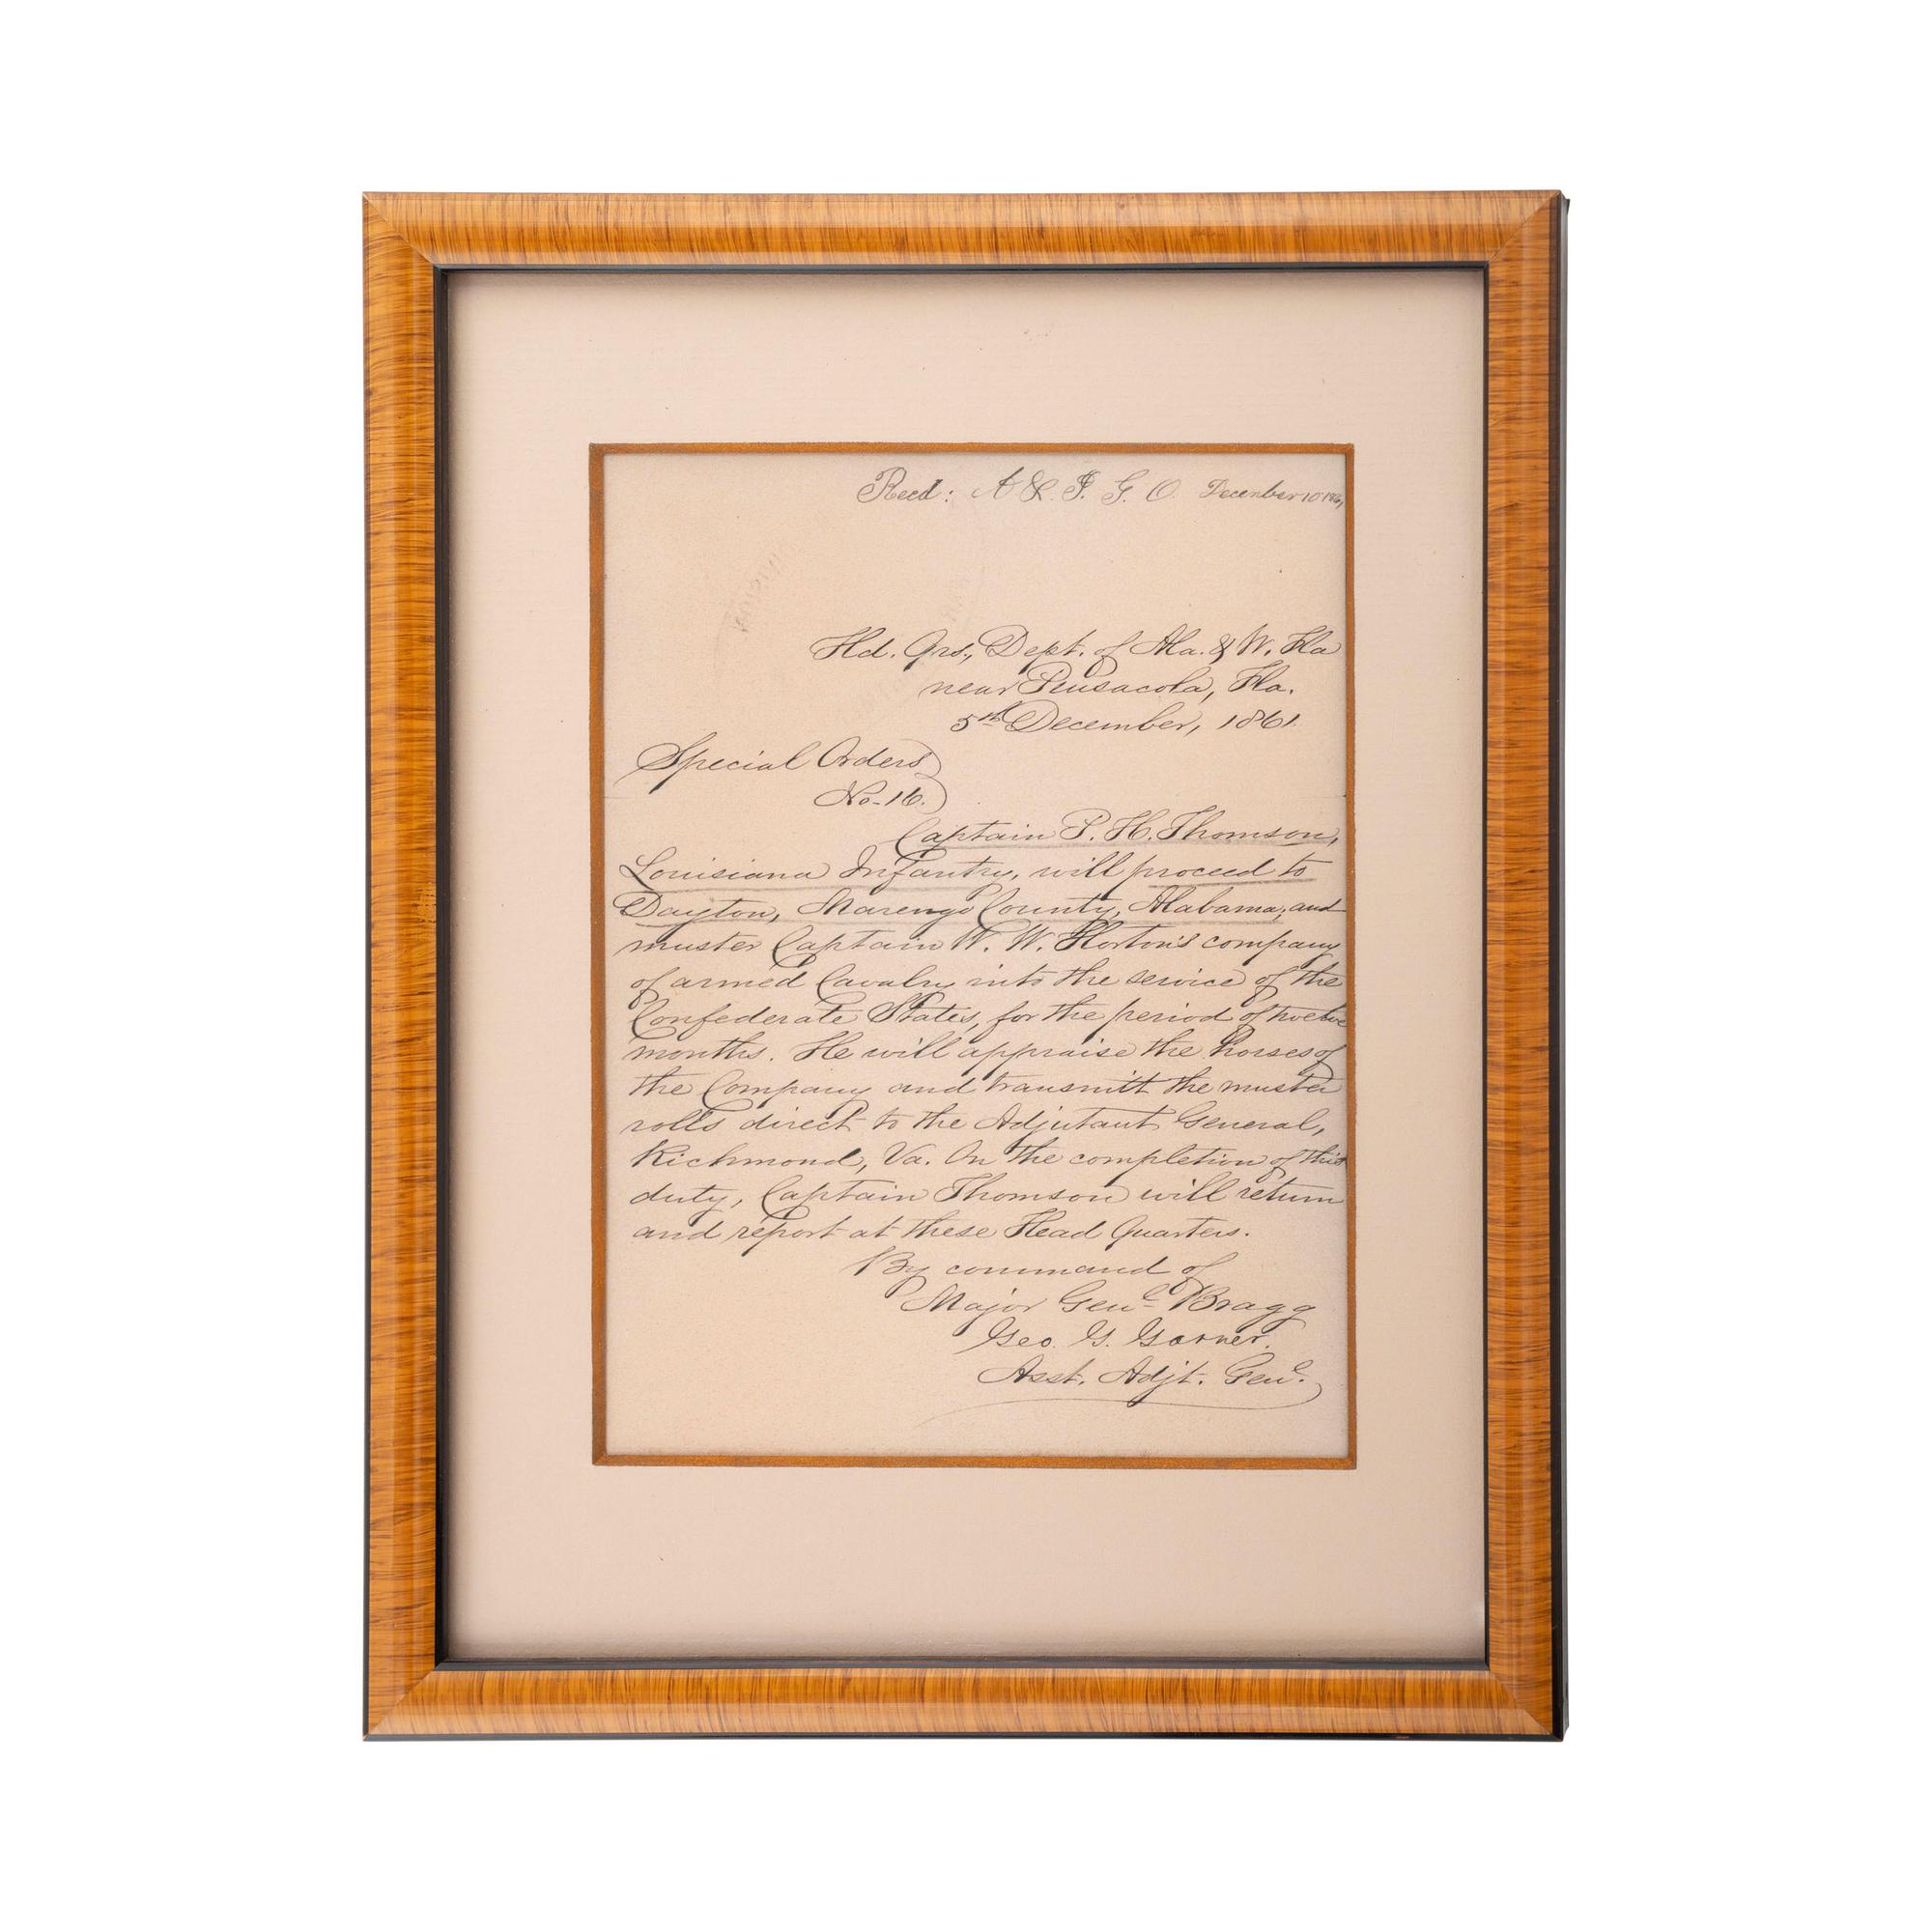 Recd: A & I. G. O. December 10 1861
Hd. Qrs., Dept. of Ala. & W. Fla
near Pensacola, Fla.
5th December, 1861
Special Orders
No. 16.
Captain P. H. Thomson,
Louisiana Infantry, will proceed to
Dayton, Marengo County, Alabama, and
muster Captain W. W. Horton's company
of armed Cavalry into the service of the
Confederate States, for the period of twelve
months. He will appraise the horses of
the Company and transmitt the muster
rolls direct to the Adjutant General,
Richmond, Va. On the completion of this
duty, Captain Thomson will return
and report at these Head Quarters.
By command of
Major Genl Bragg
Geo. G. Garner.
Asst. Adjt. Genl.